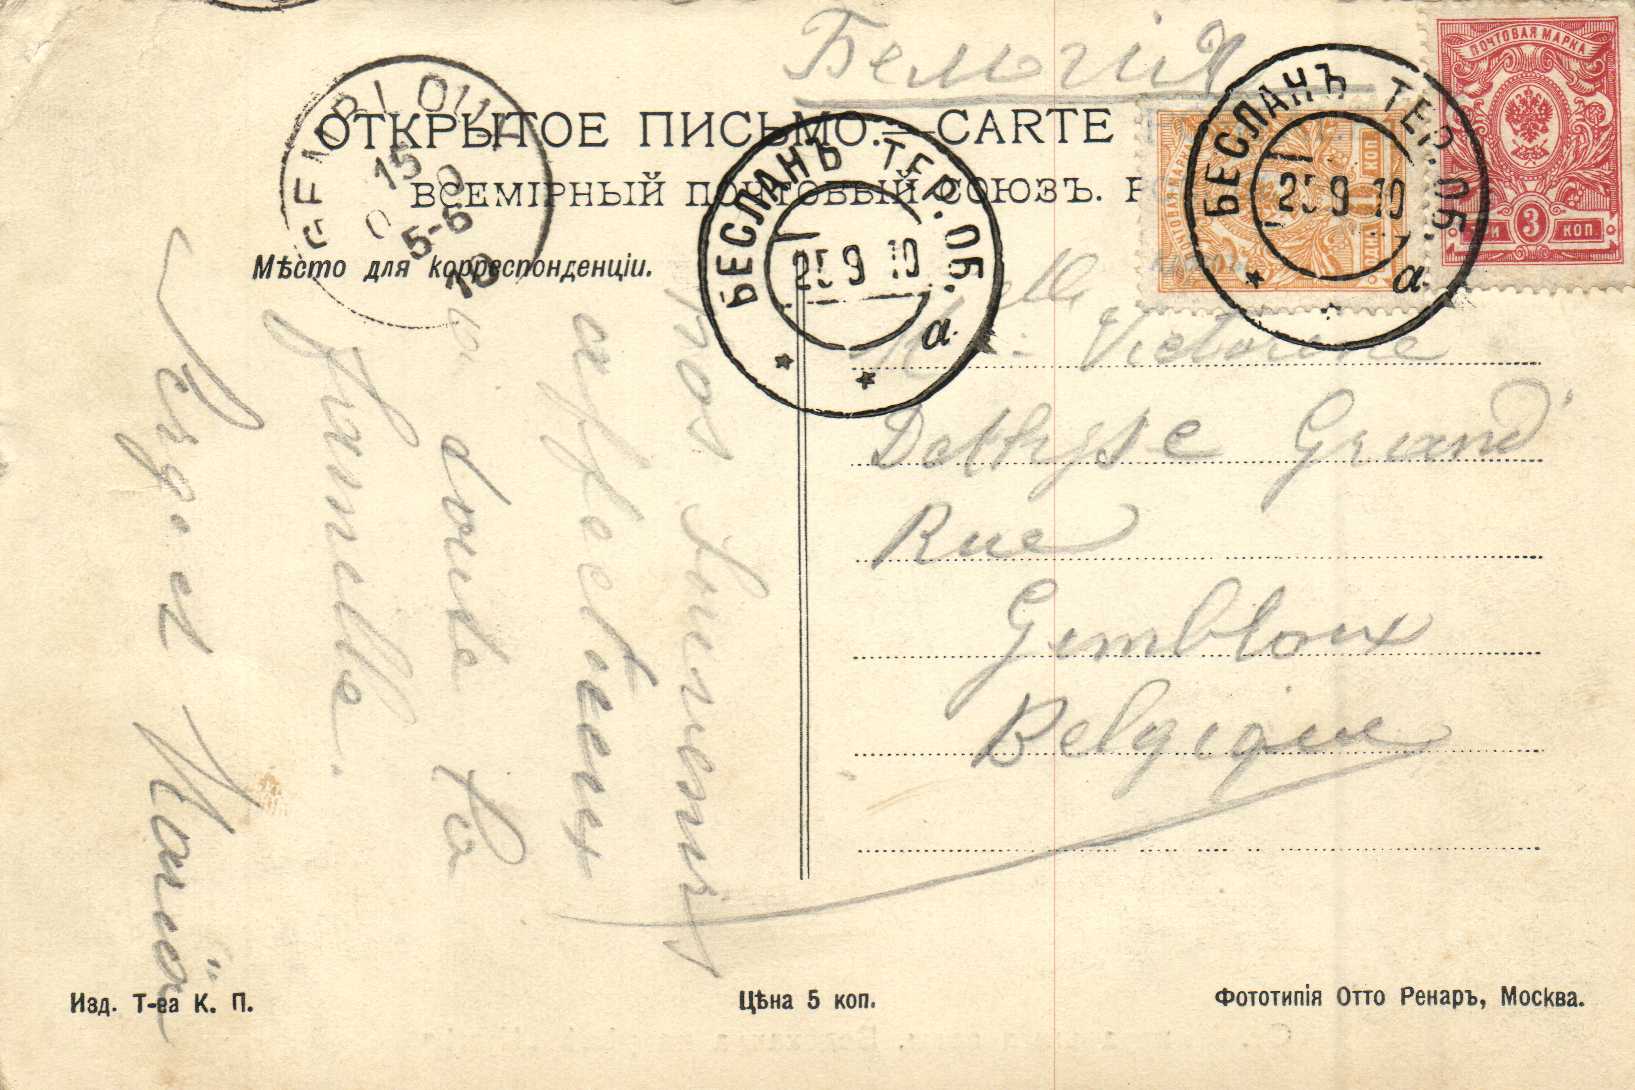 Бельгія
ОТКРЫТОЕ ПИСЬМО. — CARTE
ВСЕМІРНЫЙ ПОЧТОВЫЙ СОЮЗЪ.
Мѣсто для корреспонденціи.
GEMBLOUX
15
5-6
10
БЕСЛАНЪ ТЕР. ОБ.
25 9 10
а
БЕСЛАНЪ ТЕР. ОБ.
25 9 10
а
ПОЧТОВАЯ МАРКА
1 КОП
ПОЧТОВАЯ МАРКА
ТРИ 3 КОП
Melle Victorine
Dethyse Grand'
Rue
Gembloux
Belgique
Nos Souvenirs
affectueux
a toute la
famille.
et Maria
Изд. Т-ва К. П.
Цѣна 5 коп.
Фототипія Отто Ренаръ, Москва.